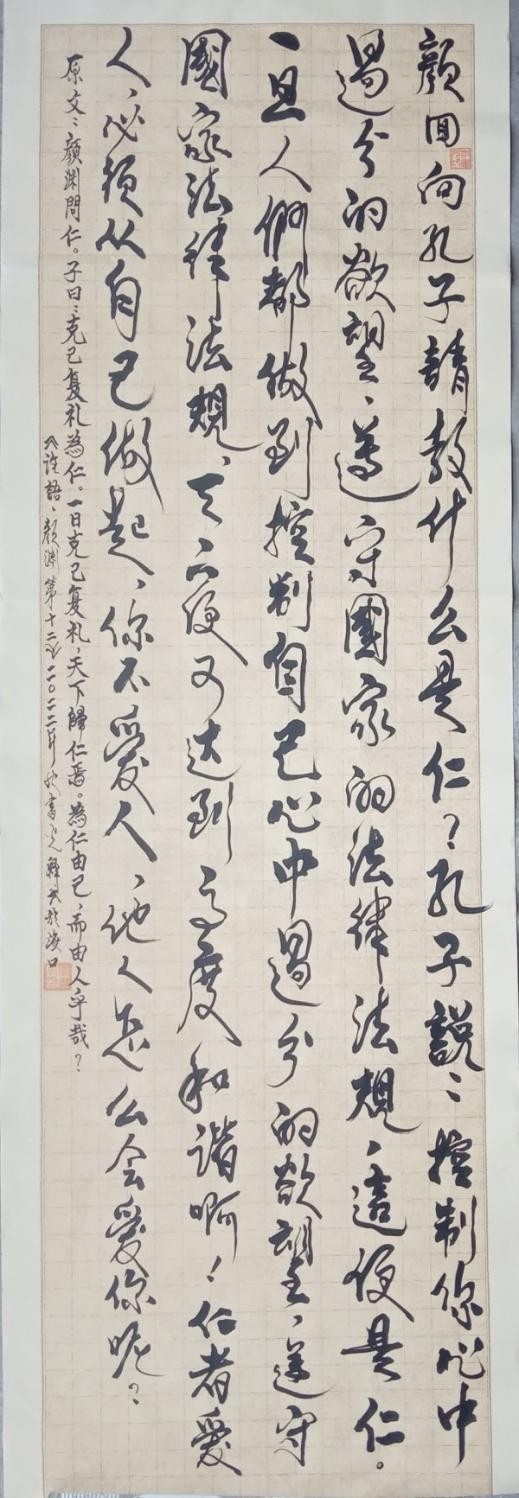 颜回向孔子請教什么是仁？孔子説：控制你心中
過分的欲望、遵守國家的法律法規、這便是仁。
一旦人們都做到控制自己心中過分的欲望、遵守
國家法律法規、天下便可达到高度和谐啊！仁者爱
人、必須从自己做起、你不爱人、他人怎么会爱你呢？
原文：顏渊問仁。子曰：克己复礼為仁。一日克己复礼，天下歸仁焉。為仁由己，而由人乎哉？
論語、颜渊第十二 二〇二二年 於海口